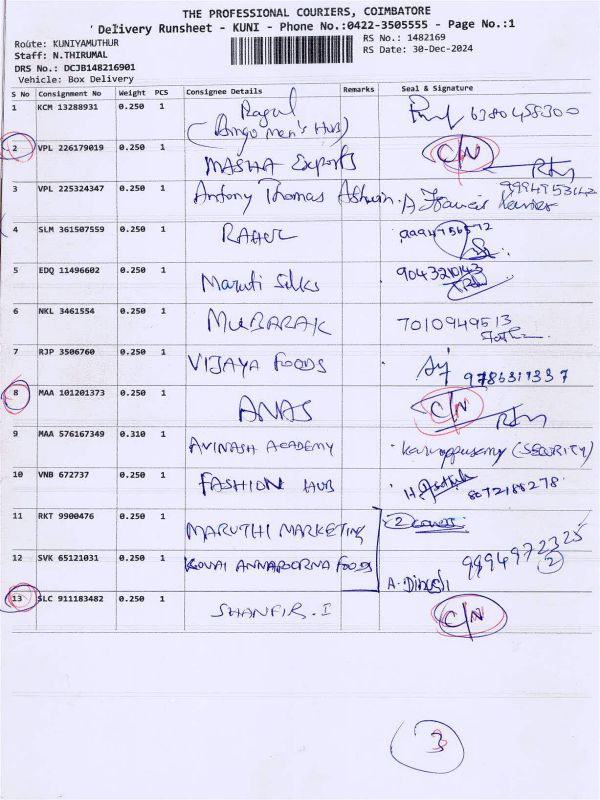 THE PROFESSIONAL COURIERS, COIMBATORE
Delivery Runsheet - KUNI - Phone No.:0422-3505555 - Page No.:1
Route: KUNIYAMUTHUR
Staff: N.THIRUMAL
DRS No.: DCJB148216901
Vehicle: Box Delivery
RS No.: 1482169
RS Date: 30-Dec-2024
S No Consignment No Weight PCS Consignee Details Remarks Seal & Signature
1 KCM 13288931 0.250 1 Ragul 6380458300
(Bingo men's HUB)
2 VPL 226179019 0.250 1 MASHA Exports C/N
3 VPL 225324347 0.250 1 Antony Thomas Ashwin. A Francis Xavier 9994953142
4 SLM 361507559 0.250 1 RAHUL
5 EDQ 11496602 0.250 1 Maruti Silks 9043210143
6 NKL 3461554 0.250 1 MUBARAK 7010949513
7 RJP 3506760 0.250 1 VIJAYA FOODS
8 MAA 101201373 0.250 1 ANAS C/N
9 MAA 576167349 0.310 1 AVINASH ACADEMY Karuppusamy (SECURITY)
10 VNB 672737 0.250 1 FASHION HUB 8072188278
11 RKT 9900476 0.250 1 MARUTHI MARKETING
12 SVK 65121031 0.250 1 KOVAI ANNAPOORNA FOODS A. Dinesh 9994972325
2
13 SLC 911183482 0.250 1 C/N
3